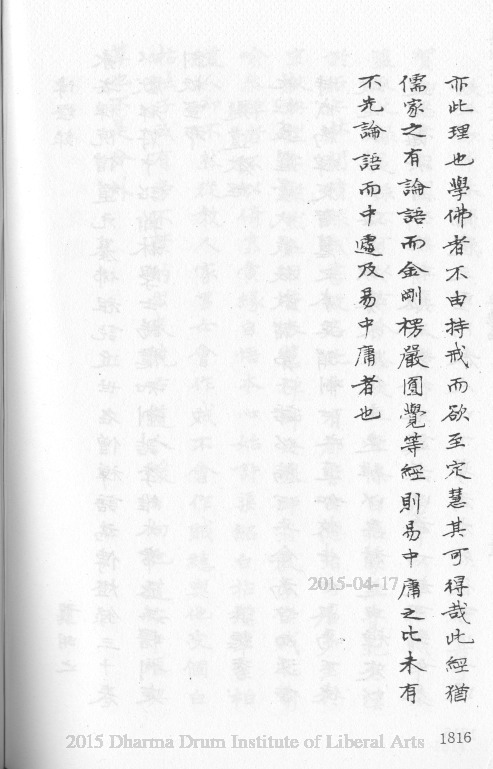 亦此理也學佛者不由持戒而欲至定慧其可得哉此經猶
儒家之有論語而金剛楞嚴圓覺等經則易中庸之比未有
不先論語而中處及易中庸者也
2015-04-17
2015 Dharma Drum Institute of Liberal Arts
1816